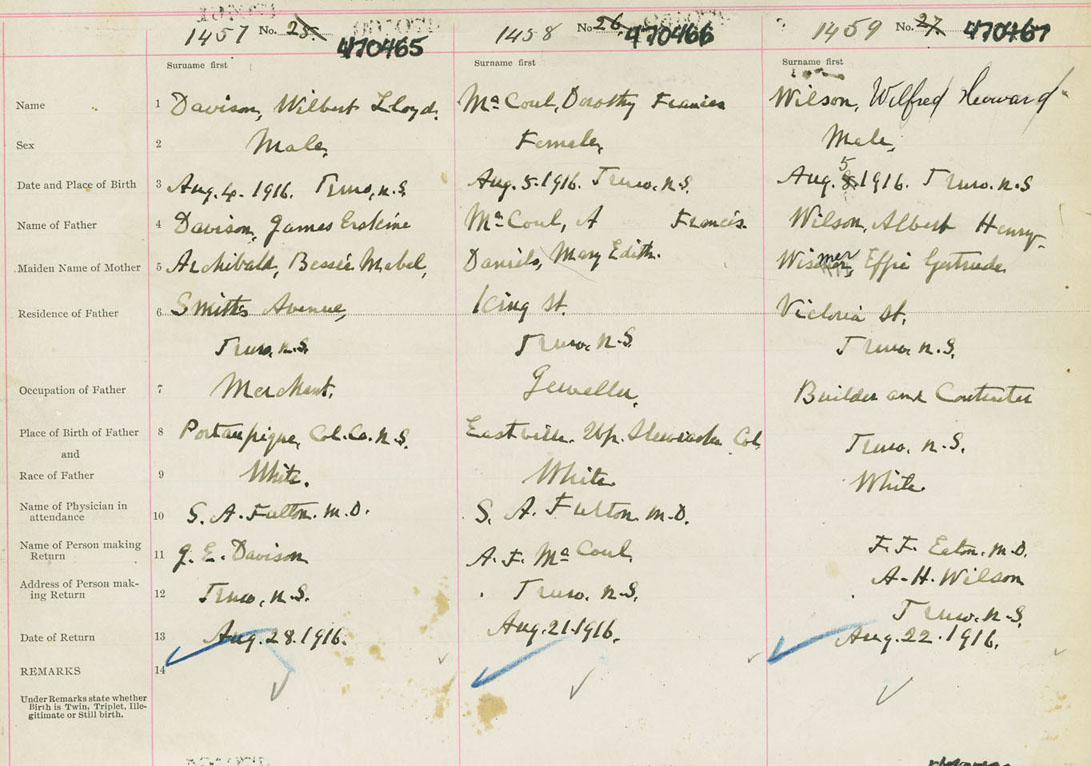 1457 No. 25. 470465 1458 No. 26. 470466 1459 No. 27. 470467
Surname first Surname first Surname first
Name 1 Davison, Wilbert Lloyd. McCoul, Dorothy Francis Wilson, Wilfred Howard
Sex 2 Male, Female, Male,
Date and Place of Birth 3 Aug. 4. 1916. Truro, N.S. Aug. 5. 1916. Truro. N.S. Aug. 5 1916. Truro. N.S
Name of Father 4 Davison, James Erskine McCoul, A Francis. Wilson, Albert Henry.
Maiden Name of Mother 5 Archibald, Bessie Mabel, Daniels, Mary Edith. Wismer, Effie Gertrude
Residence of Father 6 Smith's Avenue, King St. Victoria St.
Truro, N.S. Truro, N.S Truro, N.S.
Occupation of Father 7 Merchant. Jeweller, Builder and Contractor
Place of Birth of Father 8 Portaupique, Col. Co. N.S. Eastville. Up. Stewiacke Col. Truro, N.S.
and
Race of Father 9 White. White. White.
Name of Physician in
attendance 10 S. A. Fulton. M.D. S. A. Fulton. M.D. F. F. Eaton. M.D.
Name of Person making
Return 11 J. E. Davison A. F. McCoul A. H. Wilson
Address of Person mak-
ing Return 12 Truro, N.S. Truro, N.S. Truro. N.S,
Date of Return 13 Aug. 28. 1916. Aug. 21. 1916. Aug. 22. 1916.
REMARKS 14
Under Remarks state whether
Birth is Twin, Triplet, Ille-
gitimate or Still birth.